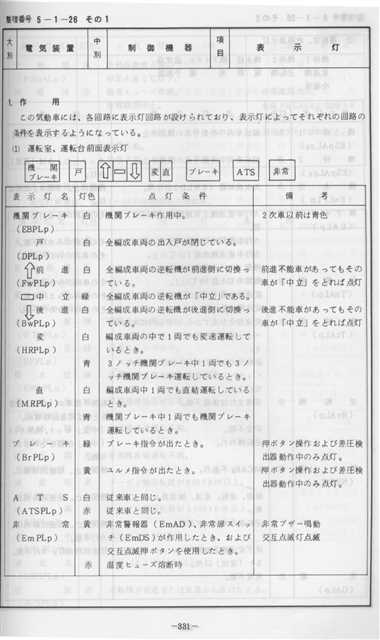 整理番号 5－1－26 その1
大別 電気装置 中別 制御機器 項目 表示灯
1. 作用
この気動車には、各回路に表示灯回路が設けられており、表示灯によってそれぞれの回路の
条件を表示するようになっている。
(1) 運転室、運転台前面表示灯
機関ブレーキ 戸 ⇧ ▭ ⇩ 変直 ブレーキ ATS 非常
表示灯名 灯色 点灯条件 備考
機関ブレーキ 白 機関ブレーキ作用中。 2次車以前は青色
(EBPLp)
戸 白 全編成車両の出入戸が閉じている。
(DPLp)
⇧前進 白 全編成車両の逆転機が前進側に切換っ 前進不能車があってもその
(FwPLp) ている。 車が「中立」をとれば点灯
▭中立 緑 全編成車両の逆転機が「中立」である。
⇩後進 白 全編成車両の逆転機が後進側に切換っ 後進不能車があってもその
(BwPLp) ている。 車が「中立」をとれば点灯
変 白 編成車両の中で1両でも変速運転して
(HRPLp) いるとき。
青 3ノッチ機関ブレーキ中1両でも3ノ
ッチ機関ブレーキ運転しているとき。
直 白 編成車両中1両でも直結運転している
(MRPLp) とき。
青 機関ブレーキ中1両でも機関ブレーキ
運転しているとき。
ブレーキ 緑 ブレーキ指令が出たとき。 押ボタン操作および差圧検
(BrPLp) 出器動作中のみ点灯。
黄 ユルメ指令が出たとき。 押ボタン操作および差圧検
出器動作中のみ点灯。
ATS 白 従来車と同じ。
(ATSPLp) 赤 従来車と同じ。
非常 黄 非常警報器(EmAD)、非常扉スイッ 非常ブザー鳴動
(EmPLp) チ(EmDS)が作用したとき、および 交互点滅灯点滅
交互点滅押ボタンを使用したとき。
赤 温度ヒューズ溶断時
—331—